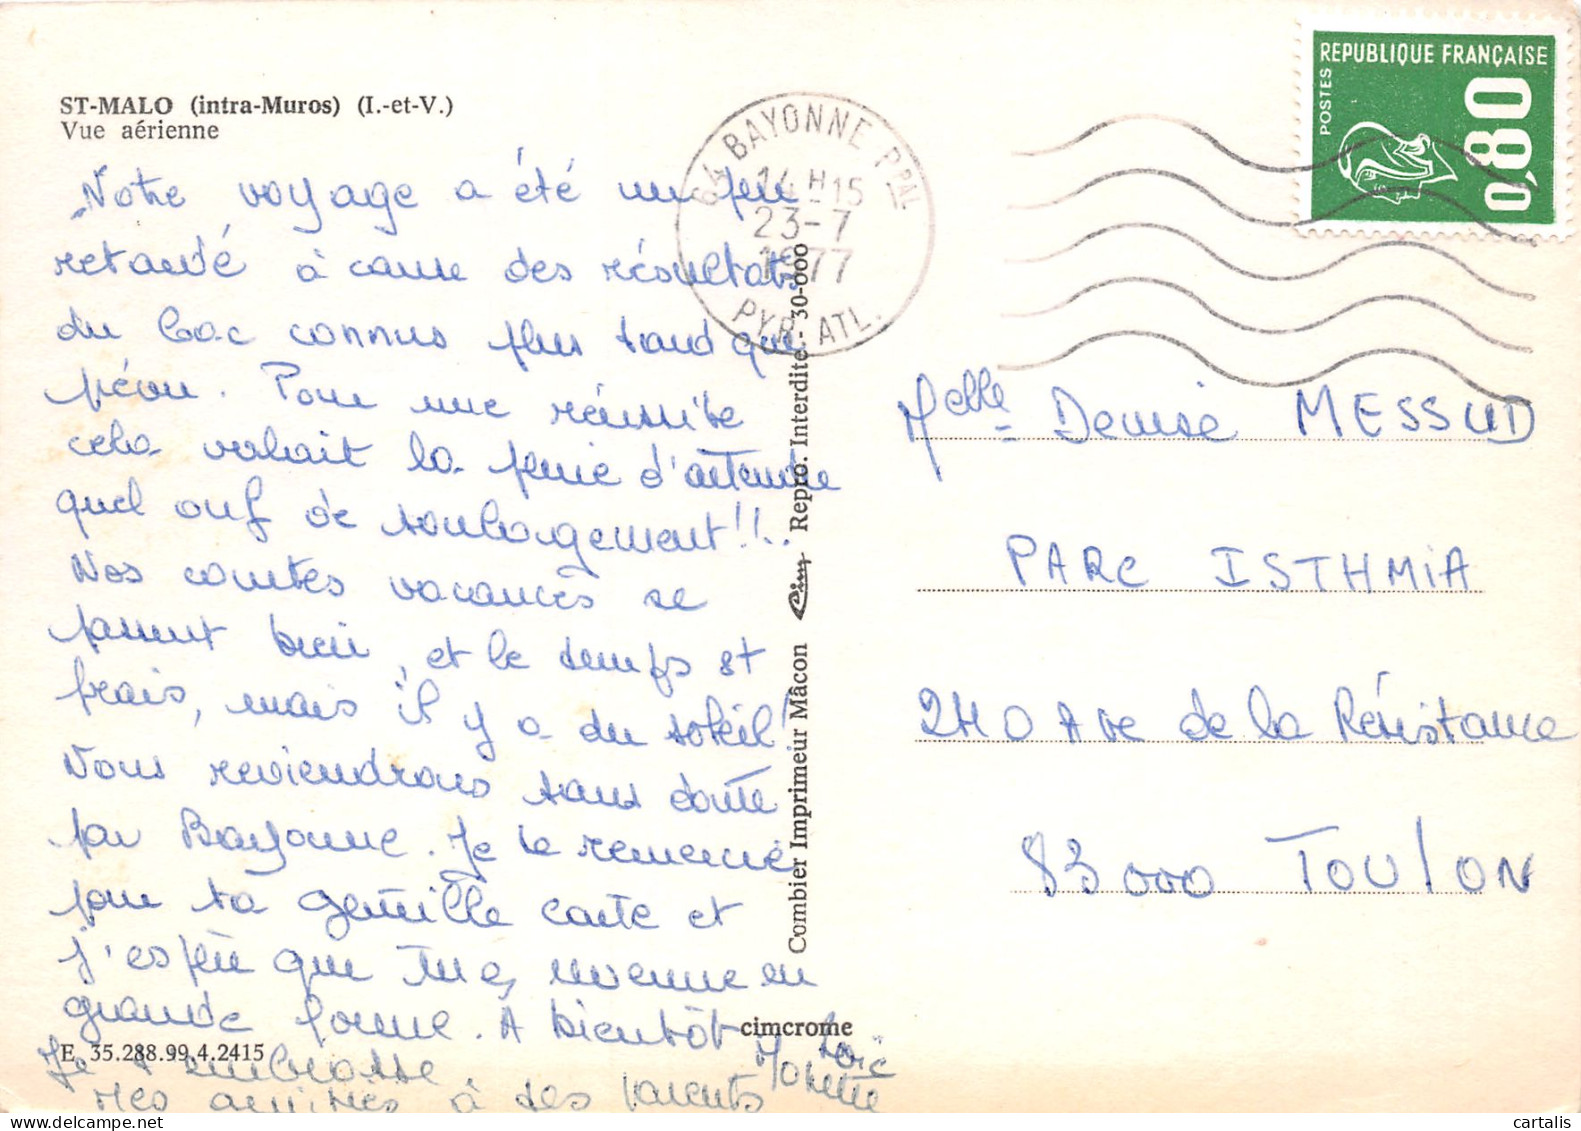 ST-MALO (intra-Muros) (I.-et-V.)
Vue aérienne
Notre voyage a été un peu
retardé à cause des résultats
du bac connus plus tard que
prévu. Pour une réussite
cela valait la peine d'attendre
quel ouf de soulagement!!..
Nos courtes vacances se
passent bien, et le temps st
frais, mais il y a du soleil!
Nous reviendrons sans doute
par Bayonne. Je te remercie
pour ta gentille carte et
j'espère que tu es revenue en
grande forme. A bientôt
Je t'embrasse
Mes amitiés à tes parents
E 35.288.99.4.2415
cimcrome
Combier Imprimeur Mâcon Cim Repro. Interdite - 30-000
64 BAYONNE PPAL
14H15
23-7
1977
PYR. ATL.
REPUBLIQUE FRANÇAISE
POSTES
0,80
Melle Denise MESSUD
PARC ISTHMIA
240 Ave de la Résistance
83000 TOULON
cartalis